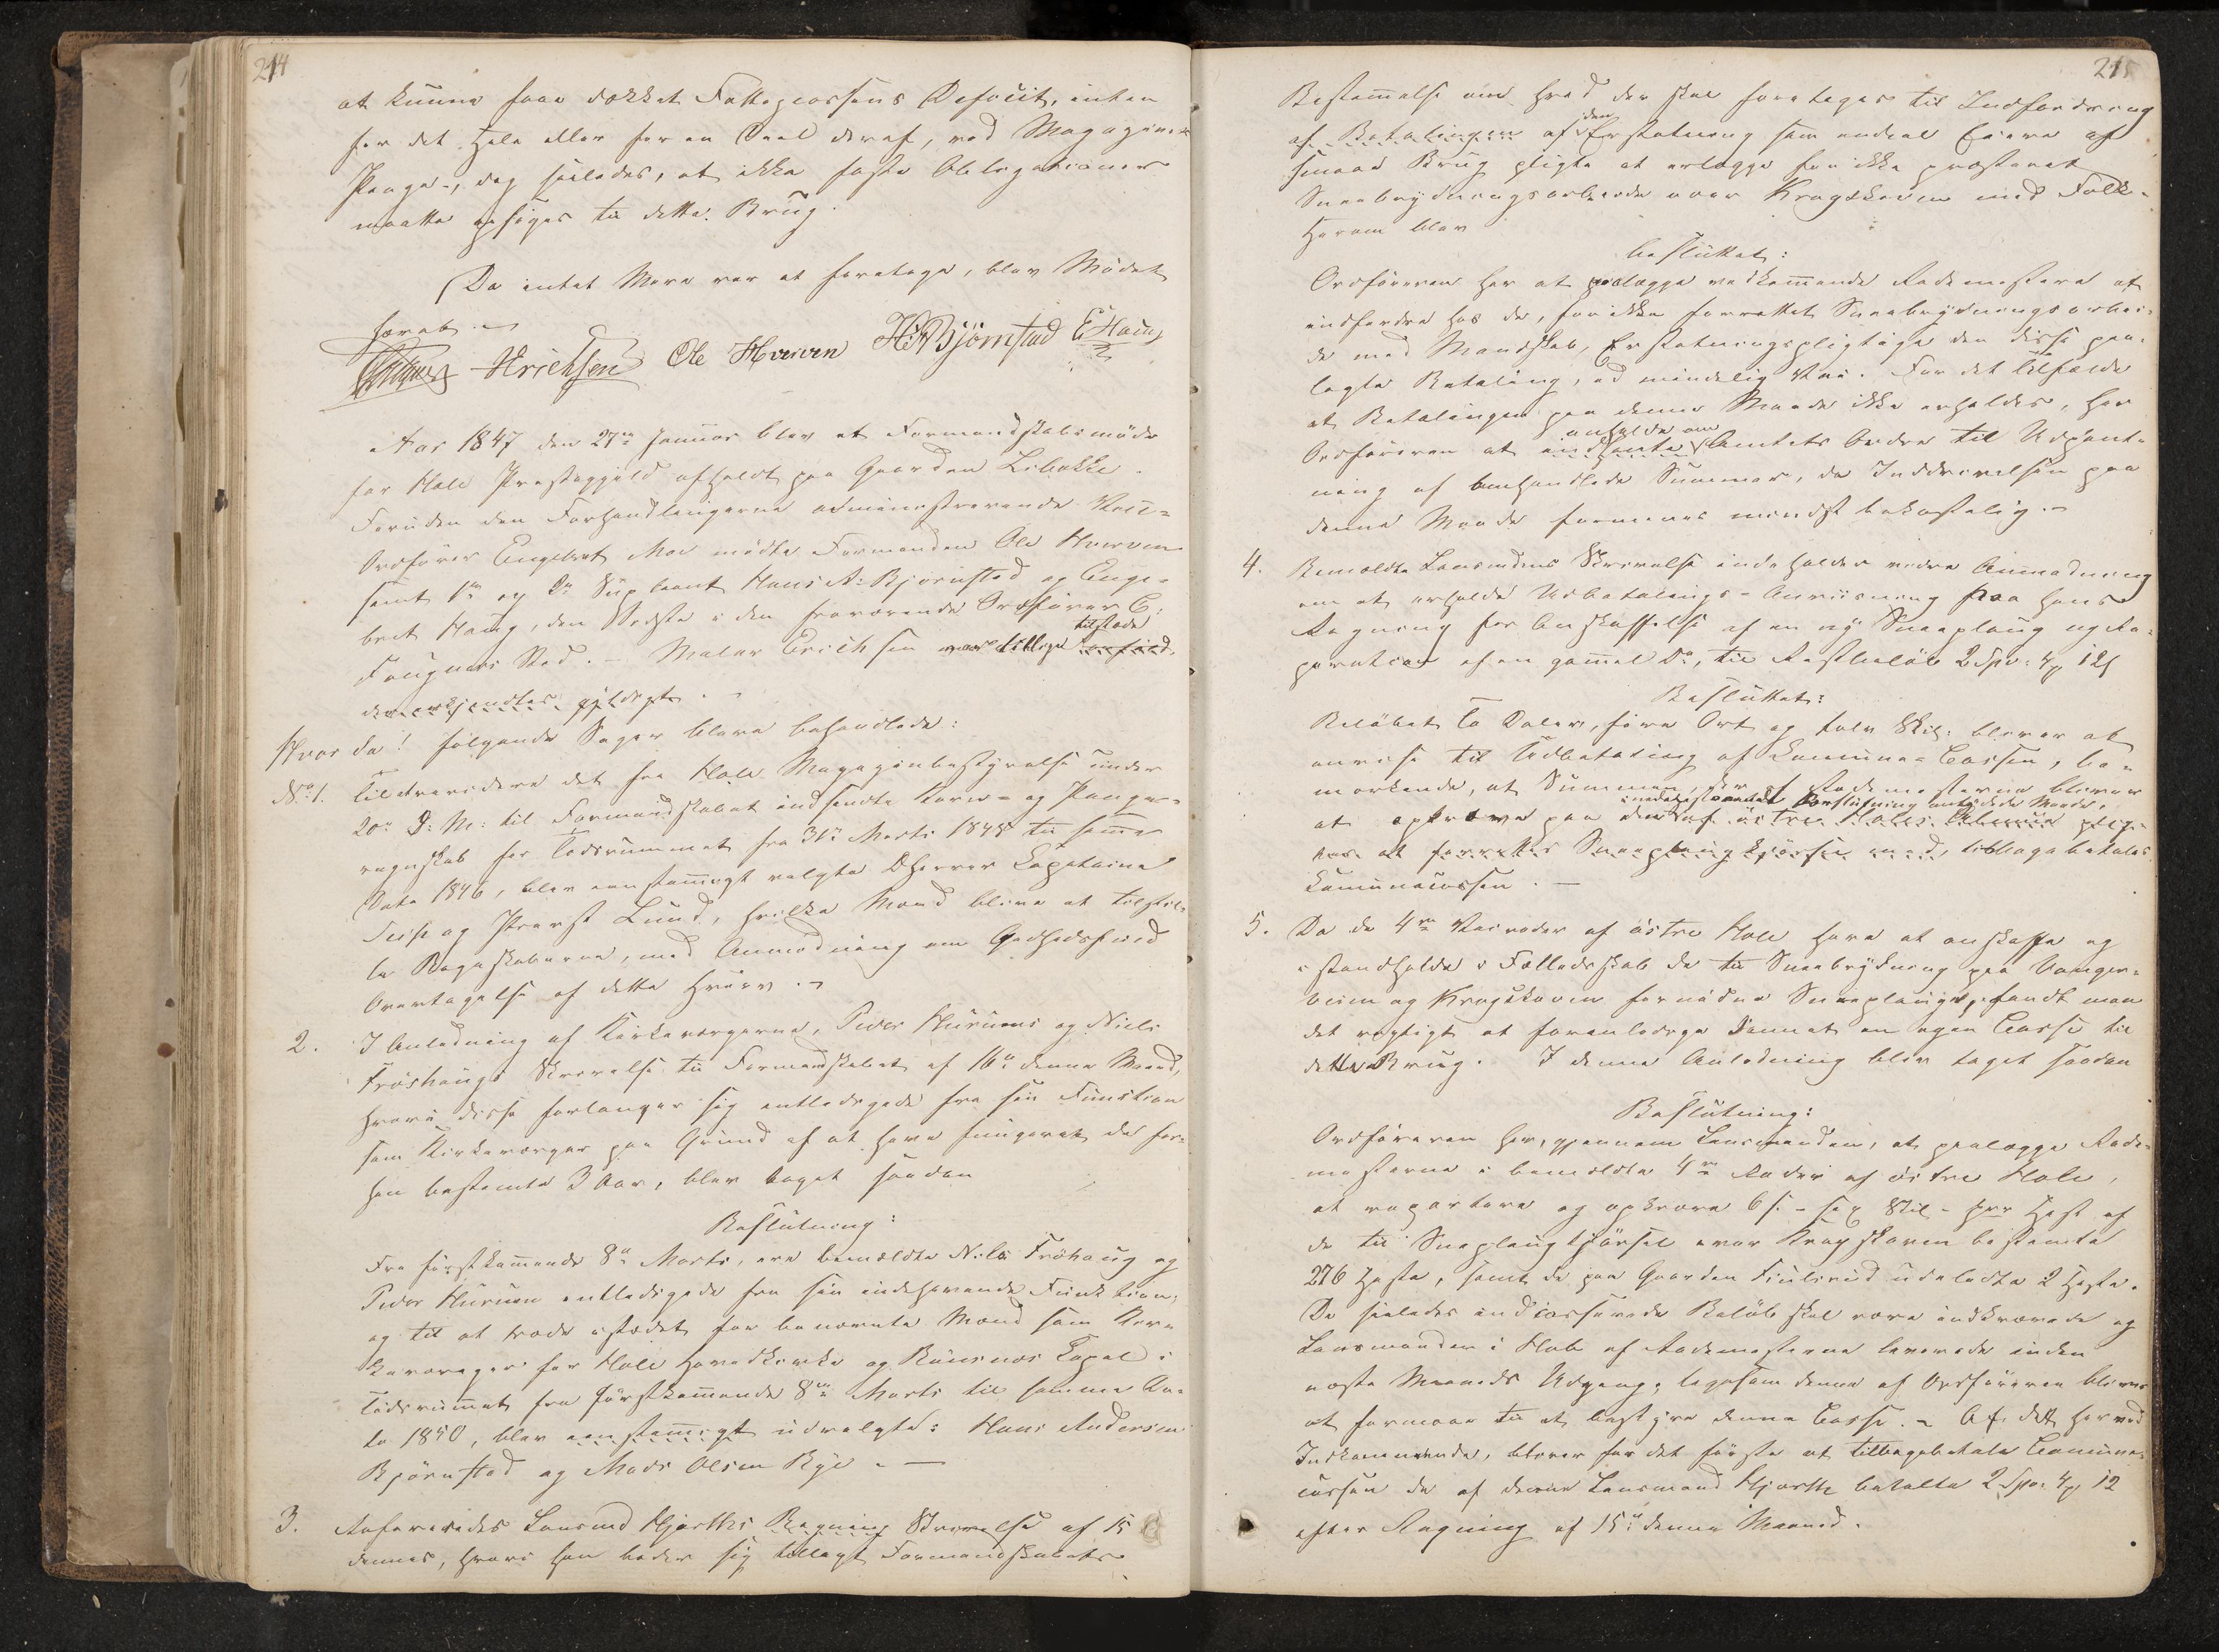 214
at kunne faae dækket Fattigcassens Deficit, enten
for det Hele eller for en Deel deraf, ved Magazinets
Penge, dog saaledes, at ikke faste Obligationer
maatte opsiges til dette Brug.
Da intet Mere var at foretage, blev Mödet
hævet.
Erichsen Ole Hverven H:A:Bjørnstad E Houg
Aar 1847 den 27de Januar blev et Formandskabsmöde
for Hole Præstegjeld afholdt paa Gaarden Libakke.
Foruden den Forhandlingerne administrerende Vice-
Ordförer Engebret Moe mödte Formanden Ole Hverven
samt 1ste og 2den Suppleant Hans A: Bjørnstad og Enge-
bret Houg, den Sidste i den fraværende Ordförer C:
Fougners Sted. - Maler Erichsen var tillige tilstede
der erkjendtes gyldigt.
Hvor da! fölgende Sager bleve behandlede:
No 1. Til at revidere det fra Hole Magazinbestyrelse under
20de D: M: til Formandskabet indsendte Korn- og Penge-
regnskab for Tidsrummet fra 31te Marts 1845 til samme
Dato 1846, blev eenstemmigt valgte DHerrer Capitaine
og Provst Lund, hvilke Mænd blive at tilstil-
le Regnskaberne, med Anmodning om Godhedsfuld
Overtagelse af dette Hverv.
2. I Anledning af Kirkeværgerne, Peder Hurums og Niels
Fröhaugs Skrivelse til Formandskabet af 16de denne Maaned,
hvori disse forlanger sig entledigede fra sin Funktion
som Kirkeværger paa Grund af at have fungeret de for-
hen bestemte 3 Aar, blev taget saadan
Beslutning:
Fra förstkommende 8de Marts, ere bemeldte Niels Fröhaug og
Peder Hurum entledigede fra sin indehavende Funktion;
og til at træde istedet for benævnte Mænd som Kir-
keværger for Hole Hovedkirke og Bönsnæs Capel i
Tidsrummet fra förstkommende 8de Marts til samme Da-
to 1850, blev eenstemmigt udvalgte: Hans Andersen
Bjørnstad og Mads Olsen Rye.
3. Refereredes Lensmd Hjorths Regning Skrivelse af 15
dennes, hvori han beder sig tillagt Formandskabets
215
Bestemmelse om hvad der skal foretages til Indfordring
af Betalingen af den Erstatning som endeel Eiere af
smaae Brug pligte at erlægge for ikke præsteret
Sneebrydningsarbeide over Krogskoven med Folk.
Herom blev
besluttet:
Ordföreren har at paalægge vedkommende Rodemestere at
indfordre hos de, for ikke forrettet Sneebrydningsarbei-
de med Mandskab, Erstatningspligtige den disse paa-
lagte Betaling, ad mindelig Vei. For det Tilfælde
at Betalingen paa denne Maade ikke erholdes, har
Ordföreren at indhente anholde om Amtets Ordre til Udpant-
ning af omhandlede Summer, da Inddrivelsen paa
denne Maade formenes mindst bekostelig.
4. Bemeldte Lensmands Skrivelse indeholder videre Anmodning
om at erholde Udbetalings-Anviisning paa hans
Regning for Anskaffelse af en ny Sneeploug og Re-
paration af en gammel Do, til Restbelöb 2 Spd: 4 12 s
Besluttet:
Belöbet To Daler, fire Ort og tolv Skil: bliver at
anvise til Udbetaling af Commune-Cassen, be-
mærkende, at Summen, der af Rodemesterne bliver
at opkræve paa den i nedenstaaende Beslutning antydede Maade, af östre Holes Almue
at forrette Sneeplougkjørsel med, tilbagebetales
Communecassen.
5. Da de 4re Veiroder af östre Hole have at anskaffe og
istandholde i Fælledsskab de til Sneebrydning paa
veien og Krogskoven fornödne Sneeplouge, fandt man
det rigtigt at foranledige dannet en egen Casse til
dette Brug. I denne Anledning blev taget saadan
Beslutning:
Ordföreren har, gjennem Lensmanden, at paalægge Rode-
mesterne i bemeldte 4re Roder af östre Hole,
at repartere og opkræve 6 s - sex Skil - pr Hest af
de til Sneeplougkjörsel over Krogskoven bestemte
276 Heste, samt de paa Gaarden Fiulsrud udeladte 2 Heste.
De saaledes indcasserede Belöb skal være indkrævede og
Lensmanden i Hole af Rodemesterne leverede inden
næste Maaneds Udgang, ligesom denne af Ordföreren bliver
at formaae til at bestyre denne Casse. - Af det herved
Indkommende, bliver for det förste at tilbagebetale Commune-
cassen de af denne Lensmand Hjorth betalte 2 Spd: 4 12
efter Regning af 15de denne Maaned.